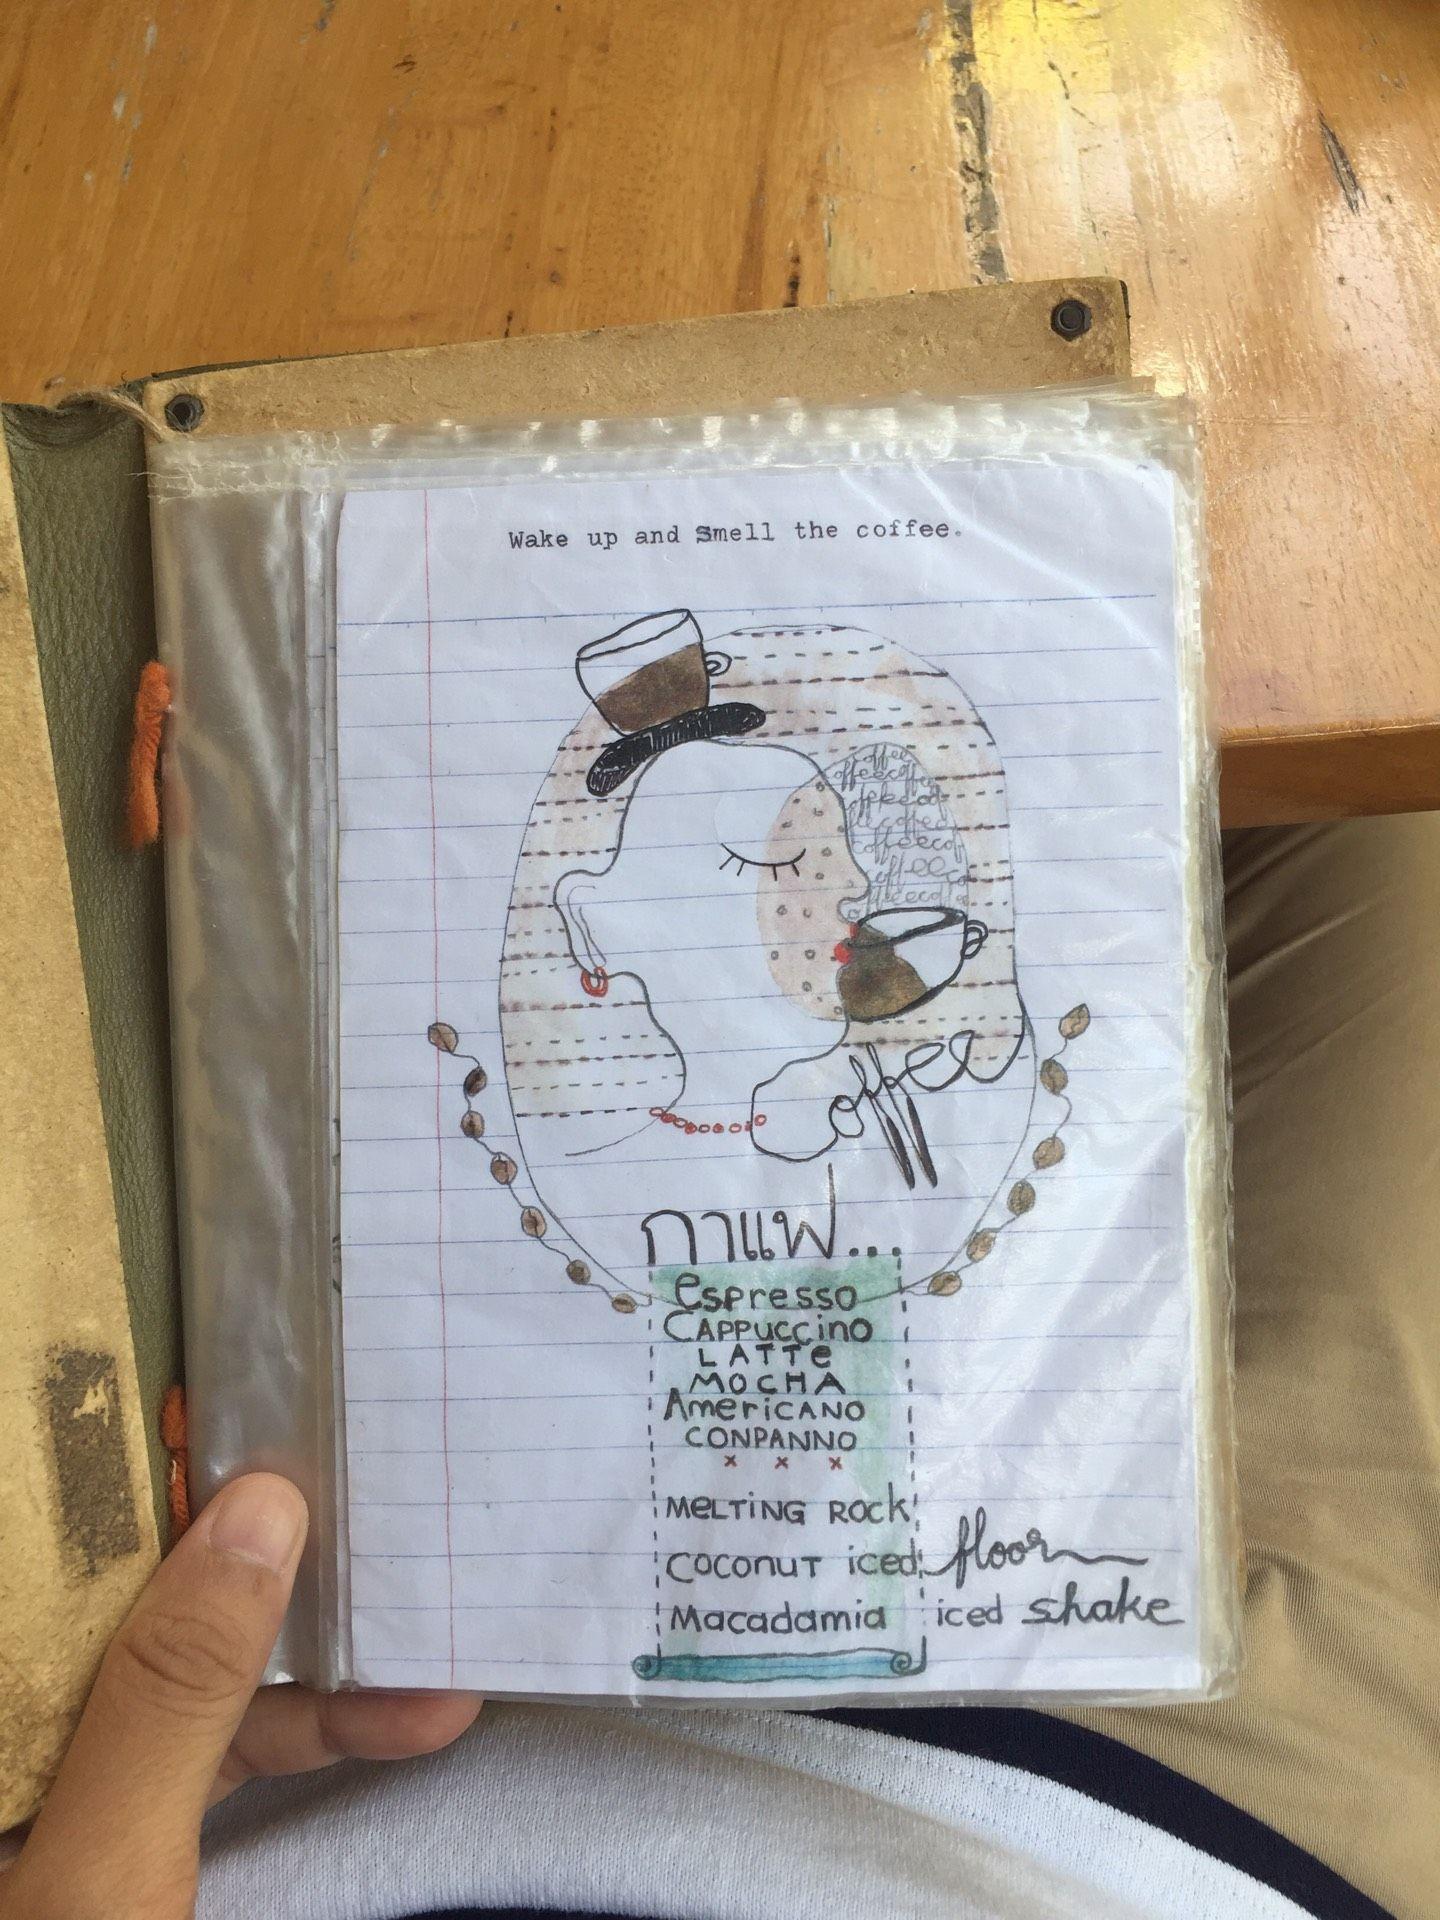 Wake up and Smell the coffee.
coffee
offeecoffe
coffeecof
coffee
coffeecoffe
coffee
กาแฟ...
espresso
CAPPuccino
LATTe
MOCHA
AmericANO
CONPANNO
x x x
MeLTING ROCK
COCONUT iced floor
Macadamia iced shake